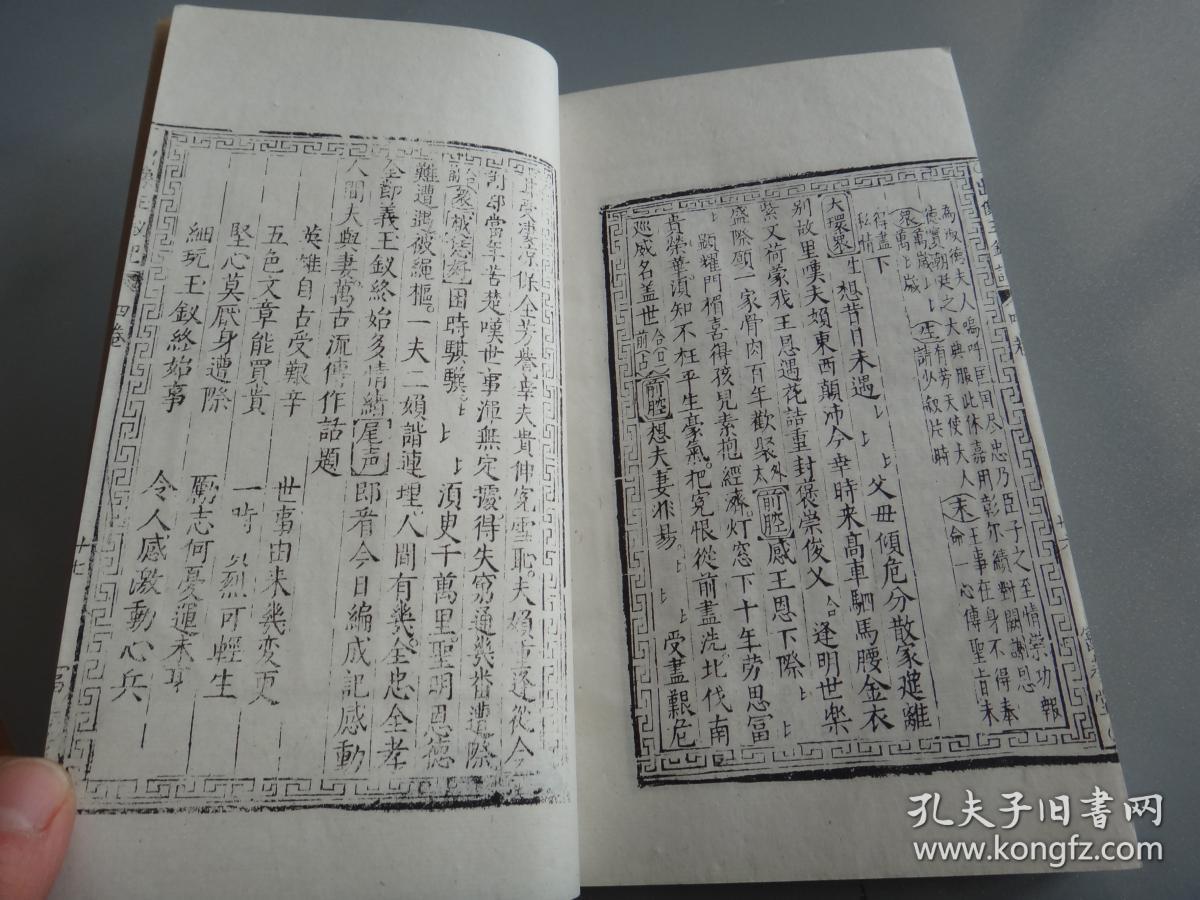 為叔德夫人嗚呼匡国尽忠乃臣子之至情崇功報
德實朝廷之大典服此休嘉用彰尔績對闕謝恩
衆萬歲
生有劳天使大人請少叙片時
末王命在身不得奉
得盡下私情
大環著生想昔日未遇上上父母傾危分散家建離
別故里嘆夫婦東西顛沛今幸時来高車駟馬腰金衣
紫又荷蒙我王恩遇花誥重封褒崇俊父合逢明世樂
盛際願一家骨肉百年歡聚太外前腔感王恩下際上上
顕耀門楣喜得孩兒素抱經濟灯窓下十年劳思富
貴榮華須知不枉平生豪氣把寃恨從前盡洗北伐南
巡威名盖世合前上前腔想夫妻非易上上受盡艱危
保全芳譽幸夫貴伸寃雪恥夫婦重逢從今
當年苦楚嘆世事渾無定據得失窮通幾番遭際
合前衆上
困時騏驥上上須吏千萬里聖明恩德
難遭遇破繩樞一夫二婦諧連埋人間有幾全忠全孝
全節義王釵終始多情緒尾声即看今日編成記感動
人間夫與妻萬古流傳作話題
英雄自古受艱辛世事由来幾变更
五色文章能買貴一時烈可輕生
堅心莫厭身遭際勵志何憂運未
細玩玉釵終始事令人感激動心兵
四卷
廿七
孔夫子旧书网
www.kongfz.com